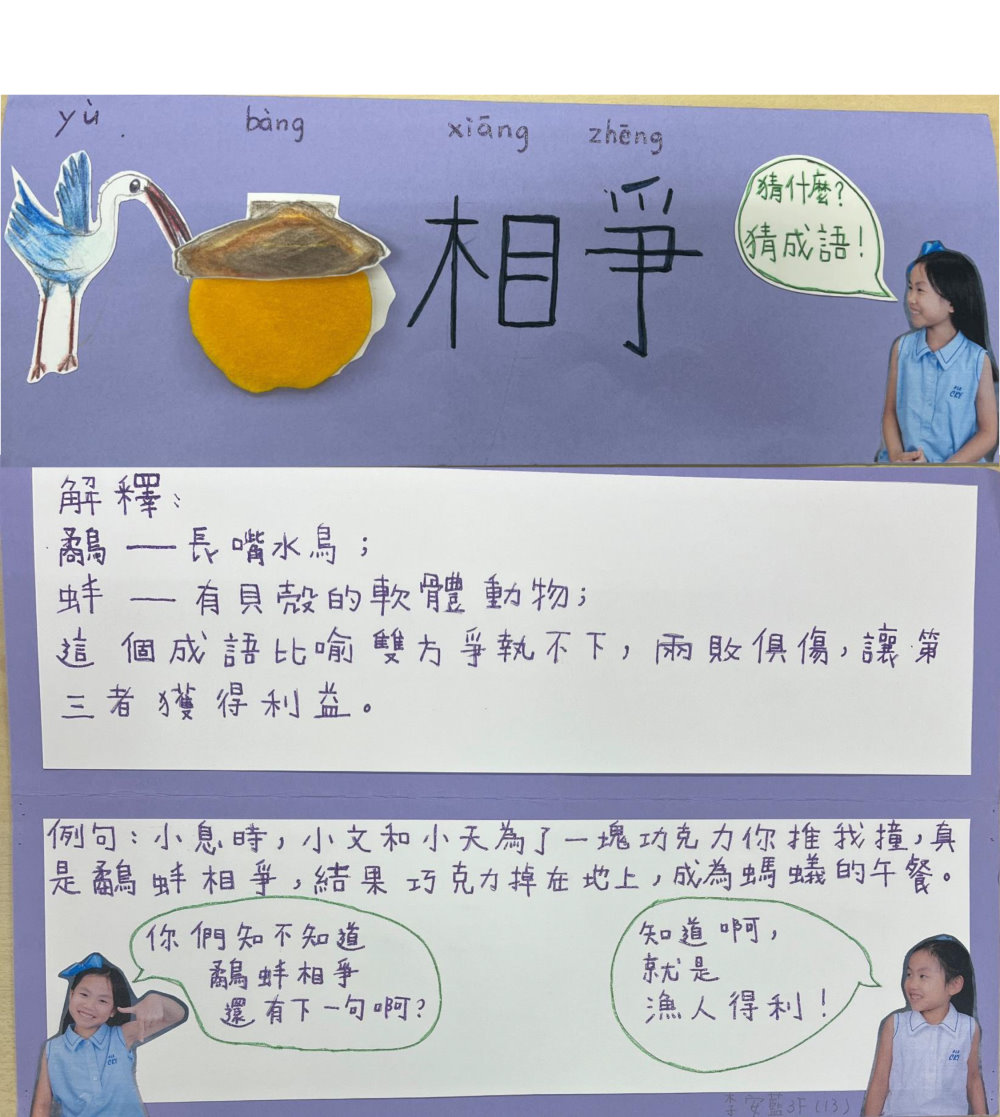 yù bàng xiāng zhēng
相爭
猜什麼?
猜成語!
解釋:
鷸 — 長嘴水鳥;
蚌 — 有貝殼的軟體動物;
這個成語比喻雙方爭執不下,兩敗俱傷,讓第
三者獲得利益。
例句:小息時,小文和小天為了一塊功克力你推我撞,真
是鷸蚌相爭,結果巧克力掉在地上,成為螞蟻的午餐。
你們知不知道
鷸蚌相爭
還有下一句啊?
知道啊,
就是
漁人得利!
李安藍3F(13)